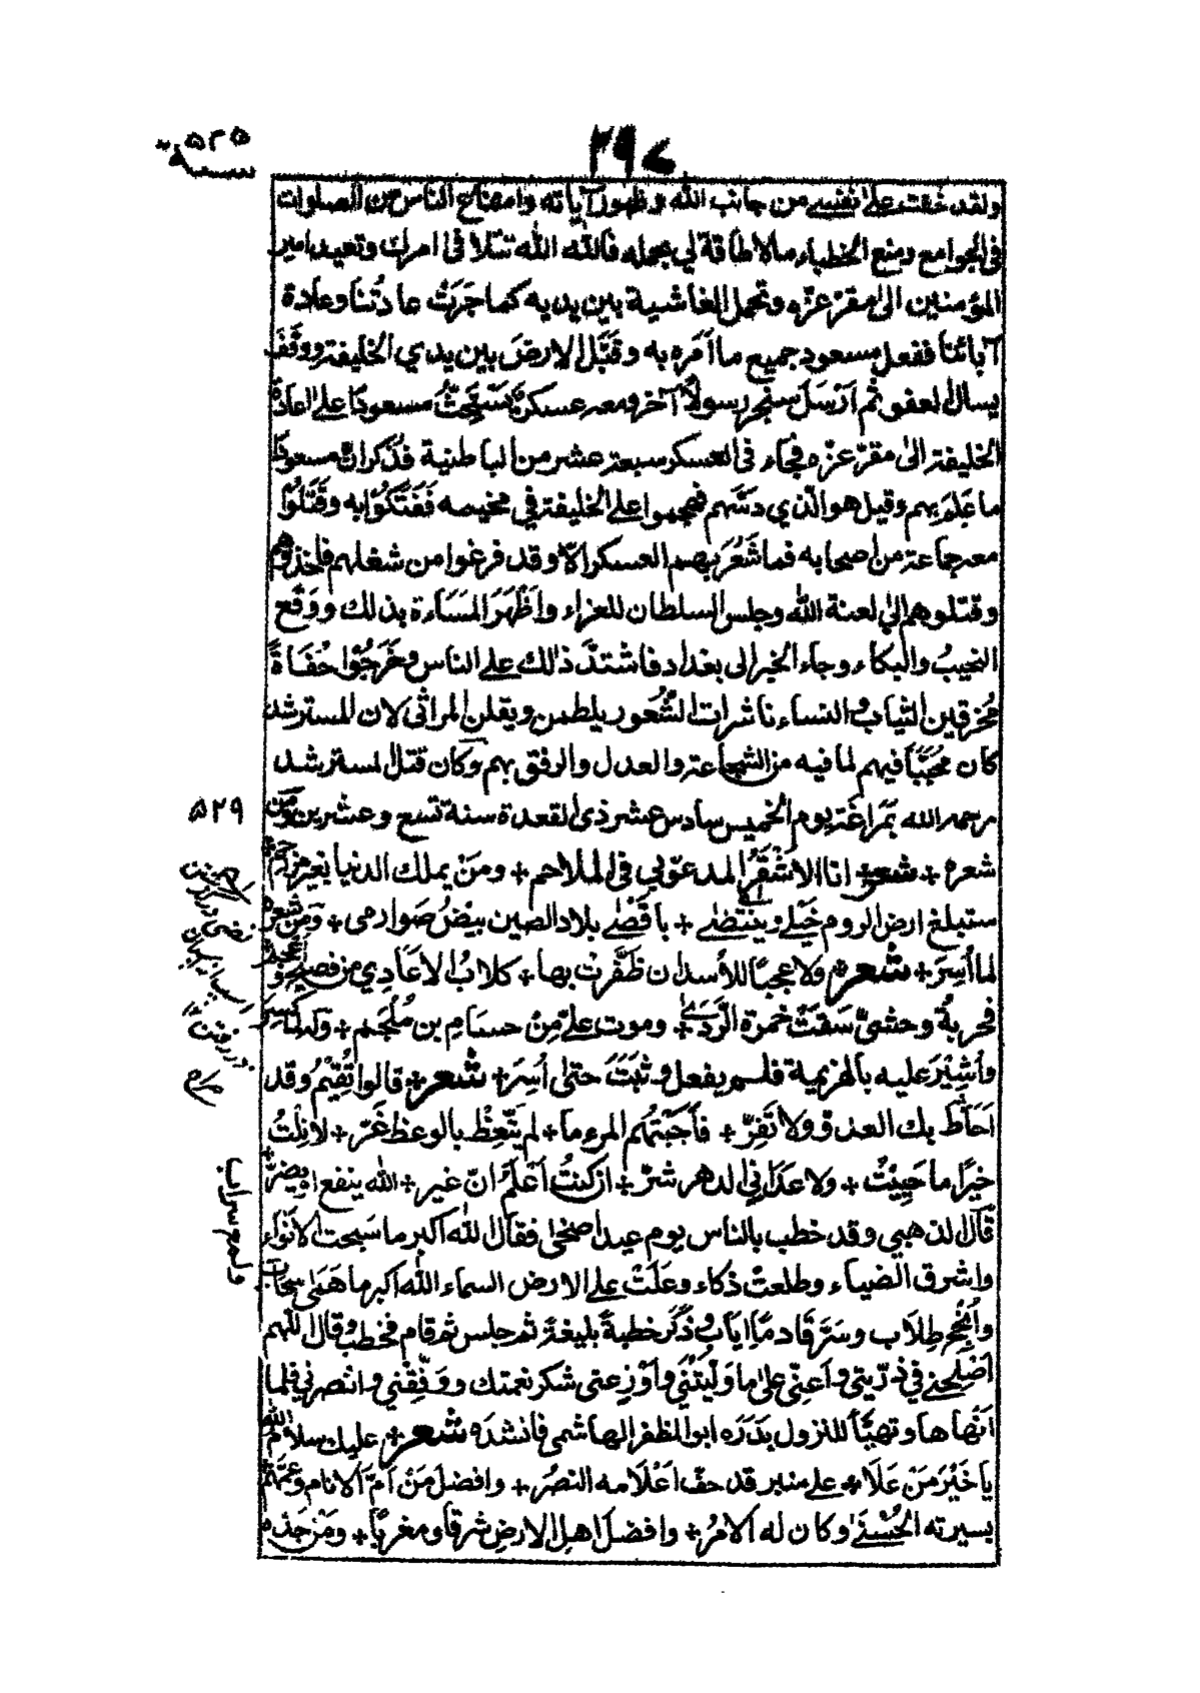 ٢٩٧
سنة ٥٢٥
ولقد خفت على نفسي من جانب الله وظهور آياته وامتناع الناس من الصلوات
فى الجوامع ومنع الخطباء مالا طاقة لي بحمله فالله الله تتلافى امرك وتعيد امير
المؤمنين الى مقر عزّه وتحمل الغاشية بين يديه كما جَرَتْ عادتُنا وعادة
آبائنا ففعل مسعود جميع ما اَمَره به وقَبَّل الارضَ بين يدي الخليفة ووَقَفَ
يسال العفو ثم اَرْسَلَ سنجر رسولاً آخر ومعه عسكرٌ يَسْتَحِثُّ مسعودًا على اعادة
الخليفة الى مقرّ عزّه فجاء فى العسكر سبعة عشر من الباطنية فذكر انّ مسعودًا
ما عَلِمَ بهم وقيل هو الّذي دَسَّهم فهجموا على الخليفة في مخيمه فَفَتَكُوْا به وقَتَلُوْا
معه جماعة من اصحابه فما شَعُرَ بهم العسكر الاّ وقد فرغوا من شغلهم فاخذوهم
وقتلوهم الى لعنة الله وجلس السلطان للعزاء واَظْهَرَ المَسَاءة بذلك ووَقَع
النحيبُ والبكاء وجاء الخبر الى بغداد فاشتدّ ذلك على الناس وخَرَجُوْا حُفَاةً
مُخرقين الثياب والنساء ناشرات الشُّعور يلطمن ويقلن المراثى لان المسترشد
كان محببًا فيهم لما فيه من الشجاعة والعدل والرفق بهم وكان قتل المسترشد
رحمه الله بمَرَاغَة يوم الخميس سادس عشر ذى القعدة سنة تسع وعشرين ومن
٥٢٩
شعره + شعر + انا الاَشْقَرُ المدعوّ بي فى الملاحم + ومَنْ يملك الدنيا بغير مزاحم +
ستبلغ ارض الروم خَيْلي ويُنْتَضٰى + باَقْصٰى بلاد الصين بيْضُ صَوارمى + ومن شعره
لما اُسِرَ + شعر + ولا عجبًا للأسد ان ظَفَرَتْ بها + كلابُ الاعَادِي من فصيح واَعجم +
فحربةُ وحشيّ سَقَتْ حمزة الرَّدَىٰ + وموت عليّ مِنْ حسامِ بن مُلْجَم + وله لما كسر
واُشِيْرَ عليه بالهزيمة فلم يفعل وثَبَتَ حتى اُسِرَ + شعر + قالوا تُقيْمُ وقد
اَحَاطَ بك العدوّ ولا تَفِرّ + فاَجَبْتُهُم المرءُ ما + لم يَتّعِظْ بالوعظ غَرّ + لا نِلْتُ
خيرًا ما حَيِيْتُ + ولا عَدَانِى الدهر شرّ + ان كنتُ اَعْلَمُ انّ غير + الله ينفع او يضرّ +
قال الذهبي وقد خطب بالناس يوم عيد اضحى فقال الله اكبر ما سَبحت الانْوَاء
واشرق الضياء وطلعتْ ذكاء وعَلَتْ على الارض السماء الله اكبر ما هَمَى سحَاب
ولمع سراب
واَنْجح طِلَاب وسَرَّ قادمًا اِيَاب وذكَر خطبةً بليغة ثم جلس ثم قام فخطب وقال اللهم
اَصْلِحْني في ذرّيتى واَعِنِّى على ما وَلَيْتَنِى واَوْزِعنى شكر نعمتك ووَفِّقْني وانصرني فلما
اَنْهَاها وتهيَّأ للنزول بَدَرَه ابو المظفر الهاشمى فانشده شعر + عليك سلام الله
يا خَيْرَ مَنْ عَلَا + على منبر قد حفّ اَعْلَامه النصُر + وافضلَ مَنْ اَمَّ الانام وعَمَّهُم +
بسيرته الحُسْنىٰ وكان له الامْرُ + وافضل اهل الارض شرقا ومغربًا + ومن جدّه